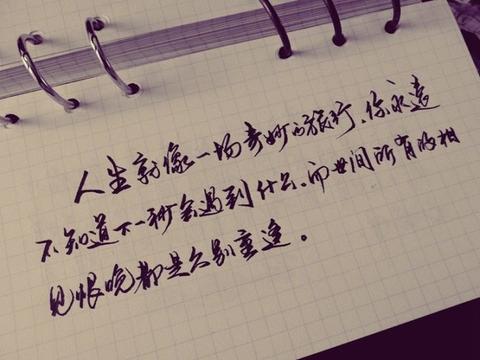 人生就像一场奇妙的旅行,你永远
不知道下一秒会遇到什么,而世间所有的相
见恨晚都是久别重逢。